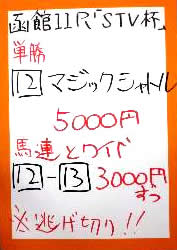 函館11R「STV杯」
単勝
12 マジックシャトル
5000円
馬連とワイド
12-13 3000円
ずつ
※逃げ切り!!